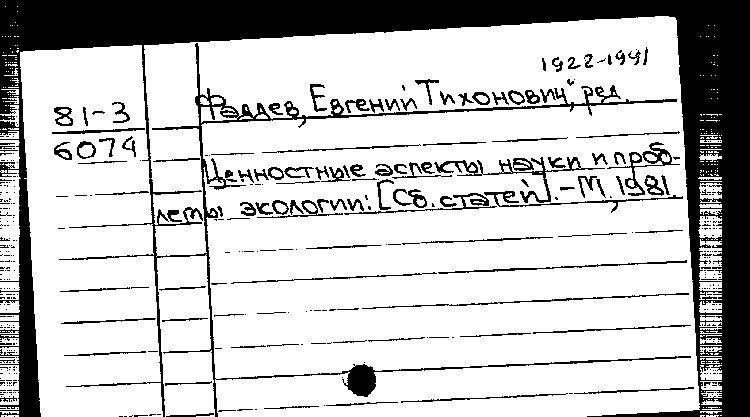 1922-1991
81-3
6074
Фаддев, Евгений Тихонович, ред.
Ценностные аспекты науки и проб-
лемы экологии: [Сб. статей]. - М., 1981.